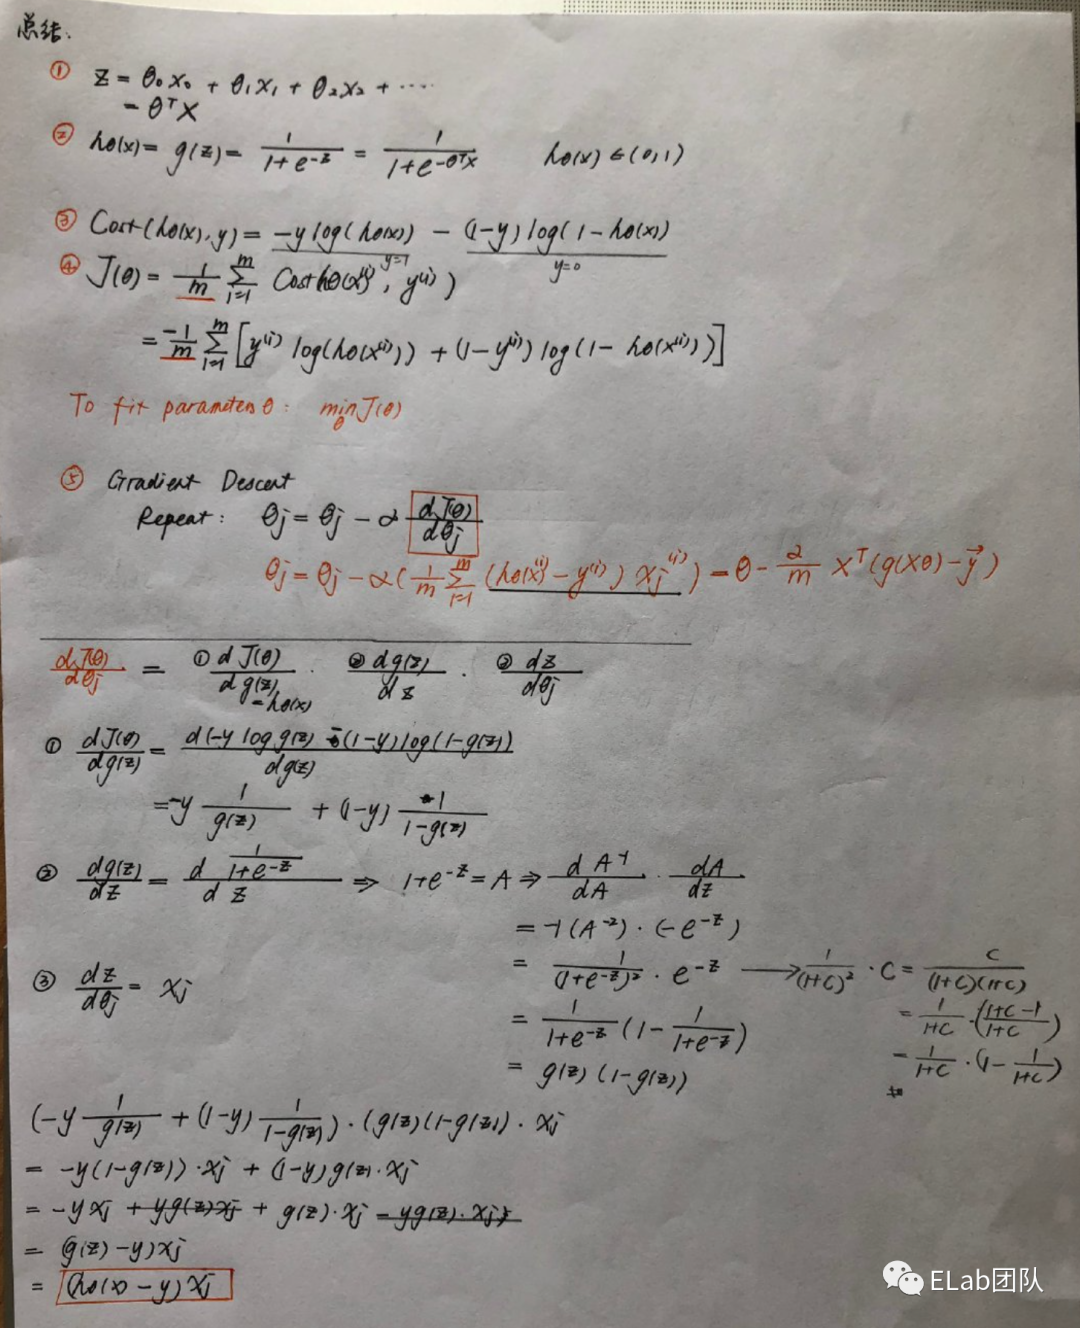 总结.
① z = θ₀x₀ + θ₁x₁ + θ₂x₂ + ····
= θᵀX
② hθ(x) = g(z) = 1/(1+e^(-z)) = 1/(1+e^(-θᵀx)) hθ(x) ∈ (0,1)
③ Cost(hθ(x), y) = -y log(hθ(x)) - (1-y) log(1-hθ(x))
y=1 y=0
④ J(θ) = 1/m Σ_{i=1}^{m} Cost hθ(x⁽ⁱ⁾, y⁽ⁱ⁾)
= -1/m Σ_{i=1}^{m} [y⁽ⁱ⁾ log(hθ(x⁽ⁱ⁾)) + (1-y⁽ⁱ⁾) log(1-hθ(x⁽ⁱ⁾))]
To fit parameters θ: min_θ J(θ)
⑤ Gradient Descent
Repeat: θj = θj - α dJ(θ)/dθj
θj = θj - α(1/m Σ_{i=1}^{m} (hθ(x⁽ⁱ⁾) - y⁽ⁱ⁾) xj⁽ⁱ⁾) = θ - α/m Xᵀ(g(Xθ) - y⃗)
dJ(θ)/dθj = ① dJ(θ)/dg(z) · ② dg(z)/dz · ③ dz/dθj
= hθ(x)
① dJ(θ)/dg(z) = d(-y log g(z) - (1-y) log(1-g(z)))/dg(z)
= -y 1/g(z) + (1-y) 1/(1-g(z))
② dg(z)/dz = d 1/(1+e^(-z)) / dz ⇒ 1+e^(-z) = A ⇒ dA⁻¹/dA · dA/dz
= -1(A⁻²) · (-e^(-z))
= 1/(1+e^(-z))² · e^(-z) → 1/(1+C)² · C = C/((1+C)(1+C))
= 1/(1+e^(-z)) (1 - 1/(1+e^(-z))) = 1/(1+C) · ((1+C-1)/(1+C))
= g(z)(1-g(z)) = 1/(1+C) · (1 - 1/(1+C))
③ dz/dθj = xj
(-y 1/g(z) + (1-y) 1/(1-g(z))) · (g(z)(1-g(z)) · xj
= -y(1-g(z)) · xj + (1-y)g(z) · xj
= -yxj + yg(z)xj + g(z) · xj - yg(z) · xj
= (g(z) - y)xj
= (hθ(x) - y)xj
ELab团队